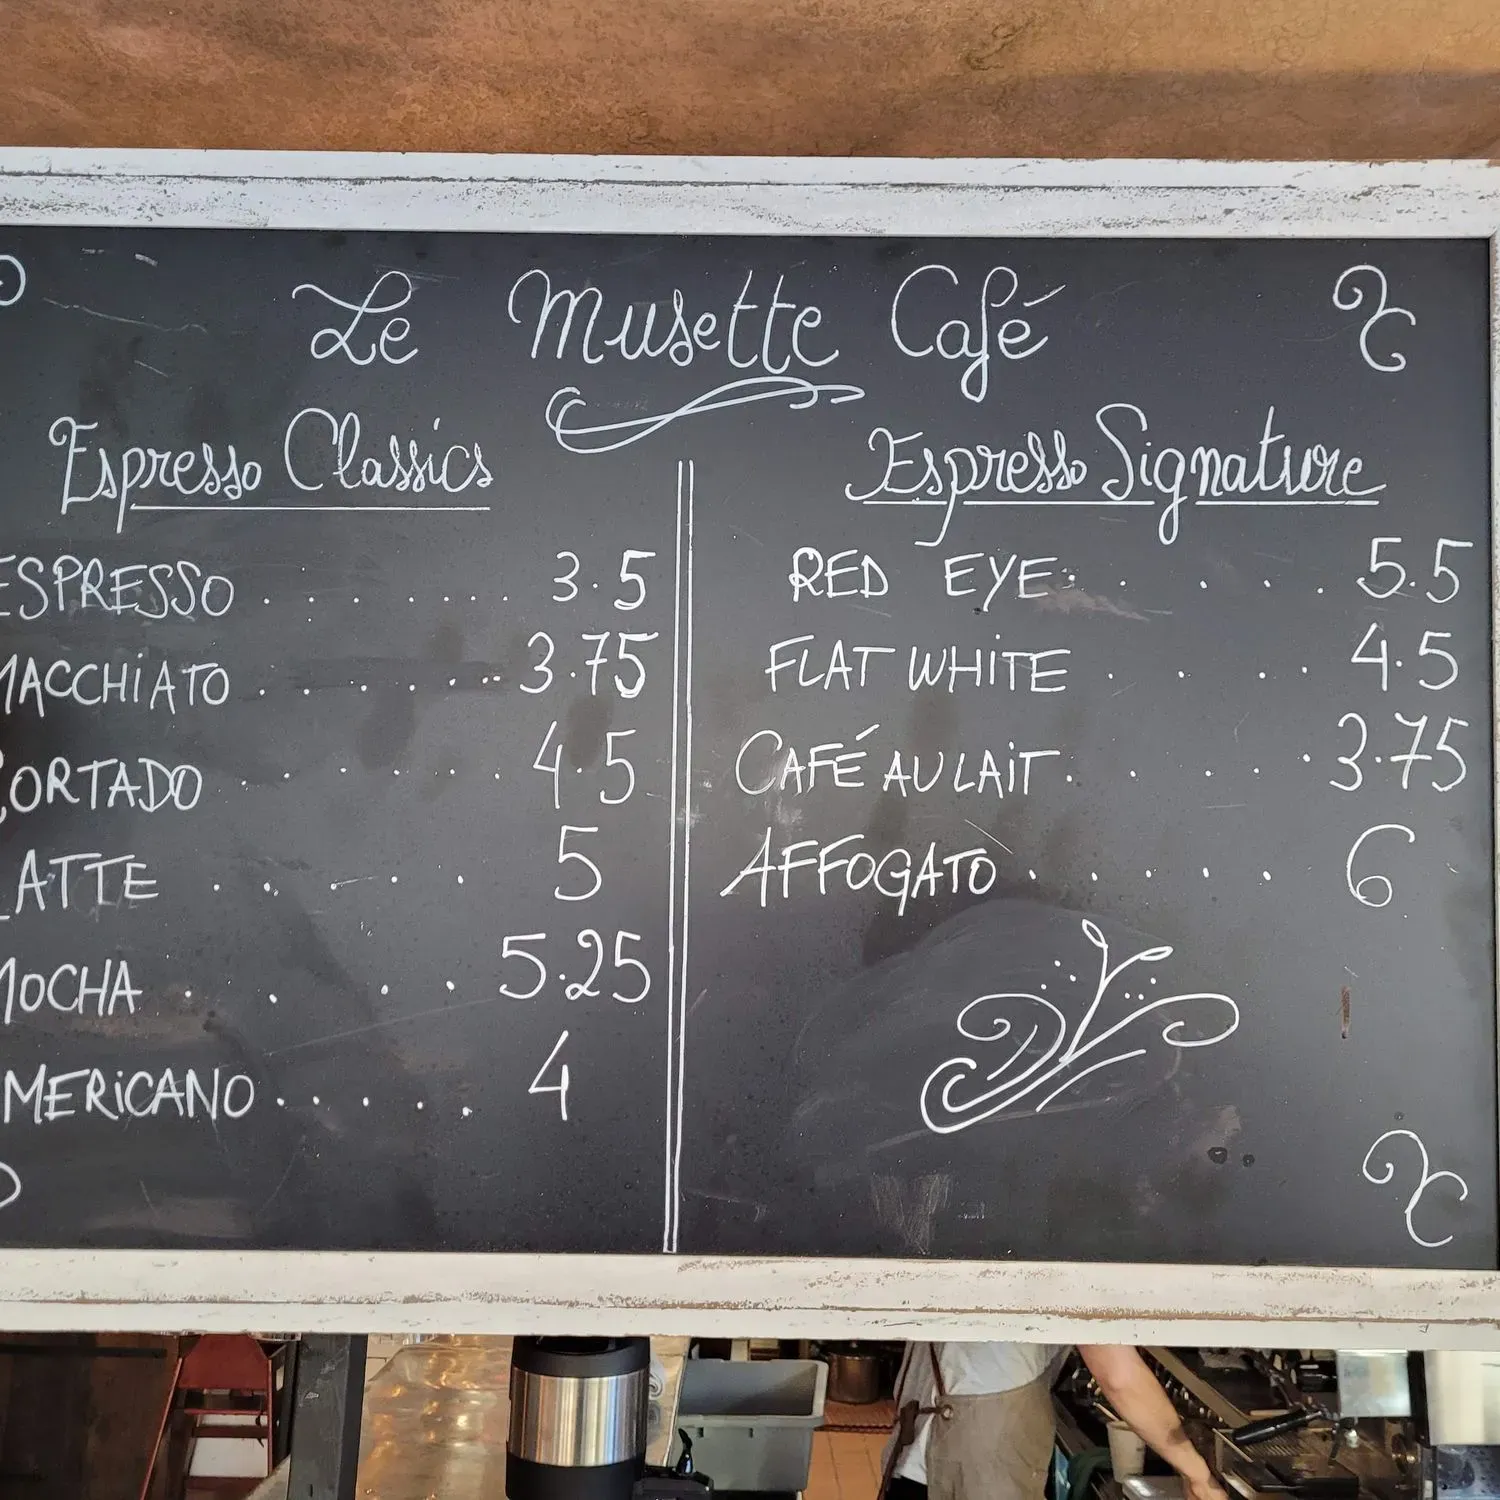 Le Musette Café
Espresso Classics
ESPRESSO . . . . . . . . 3.5
MACCHIATO . . . . . . . . 3.75
CORTADO . . . . . . . 4.5
LATTE . . . . . 5
MOCHA . . . . 5.25
AMERICANO . . . . . 4
Espresso Signature
RED EYE . . . . . 5.5
FLAT WHITE . . . . . 4.5
CAFÉ AU LAIT . . . . . . 3.75
AFFOGATO . . . . . 6